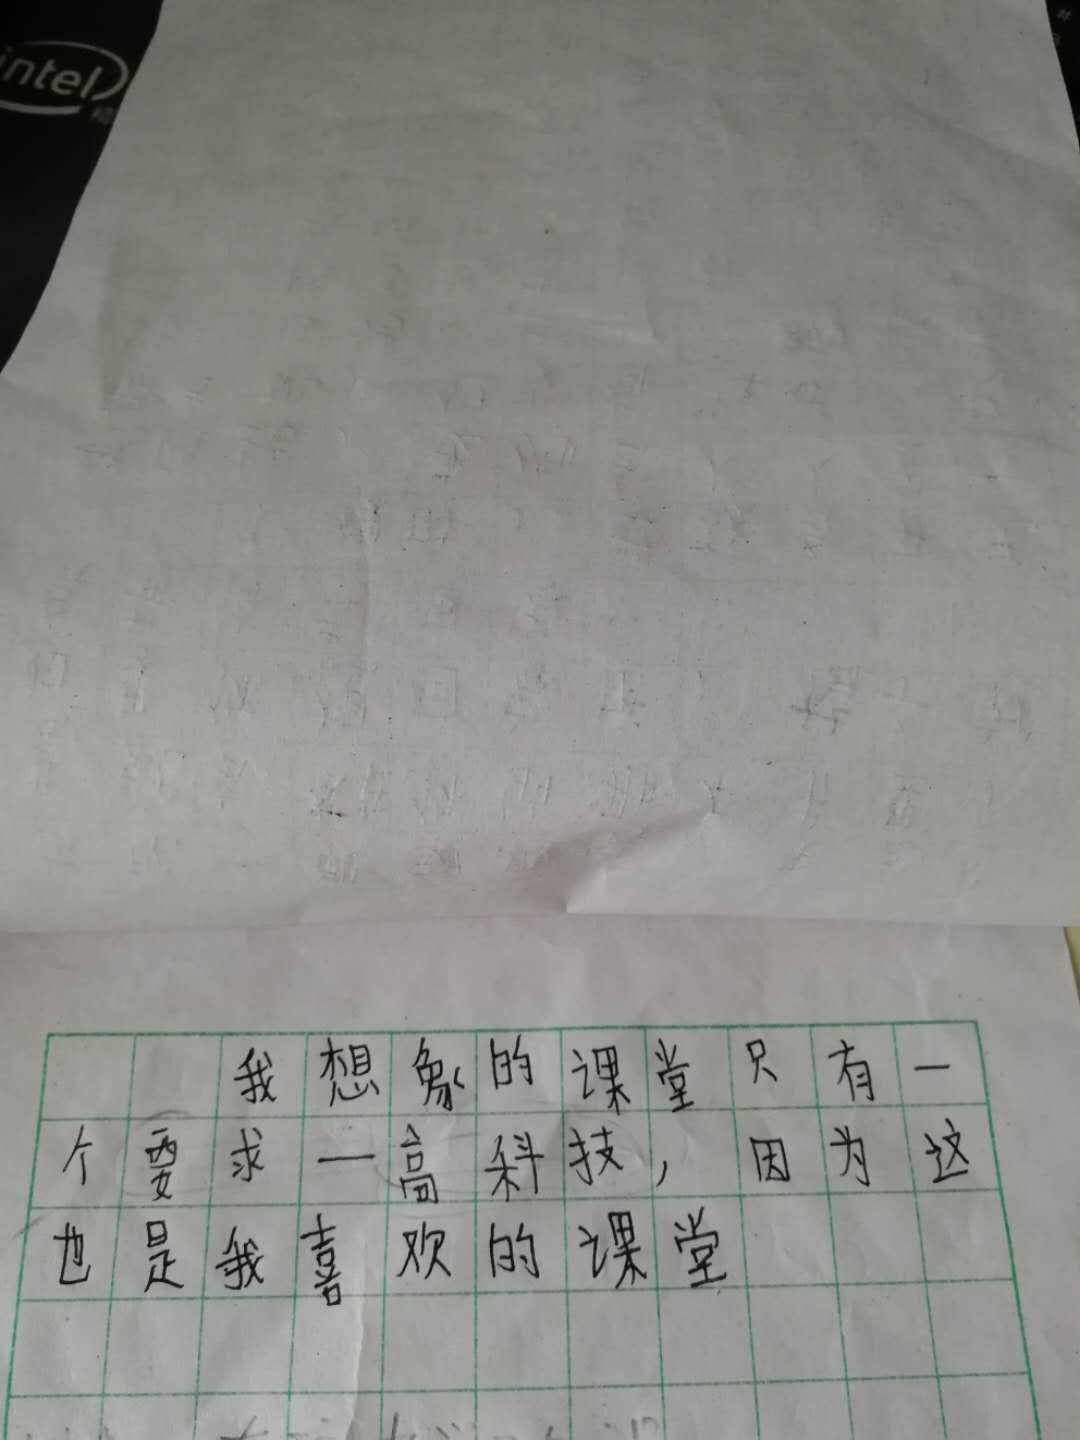 intel
我想象的课堂只有一
个要求一高科技,因为这
也是我喜欢的课堂